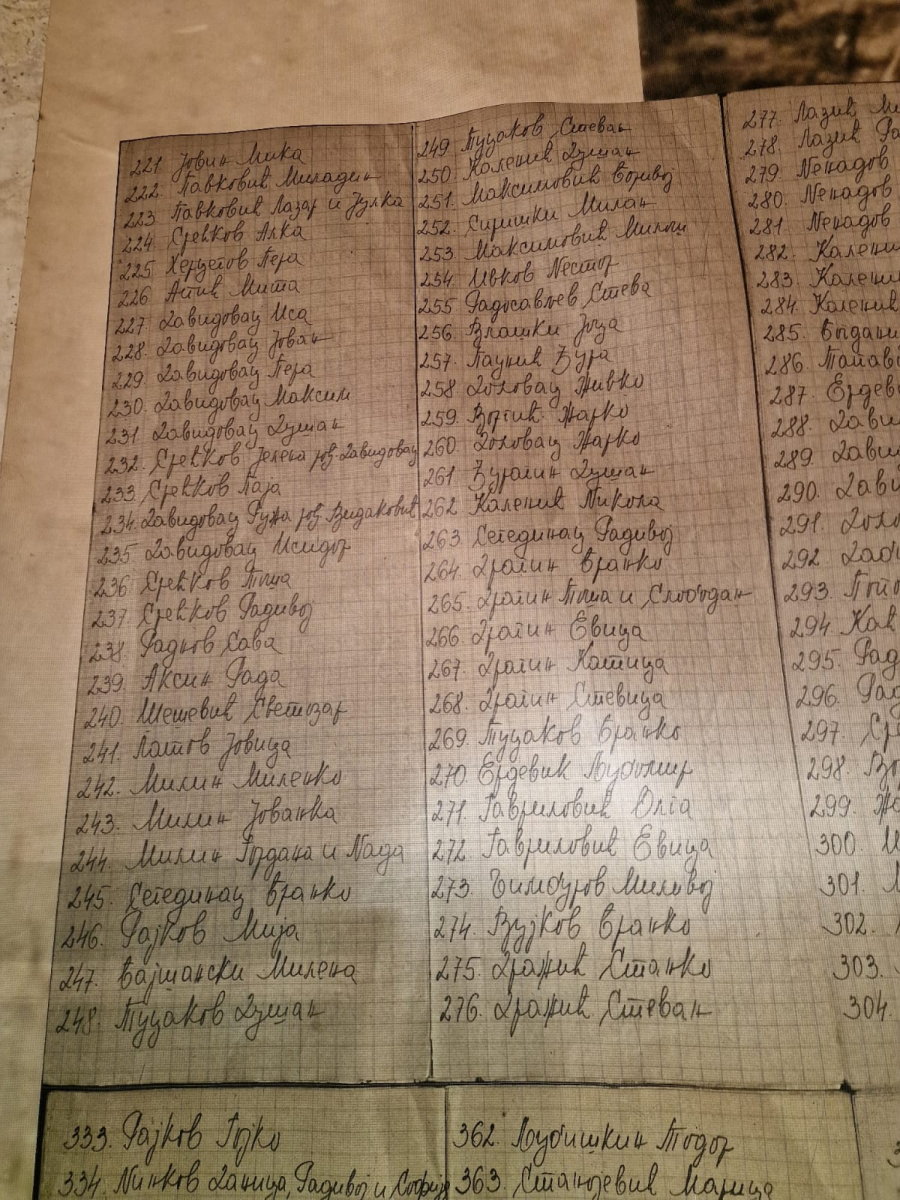 221 Јовин Мика
222. Павковић Миладин
223 Павковић Лазар и Јулка
224. Сревков Алка
225 Херцегов Пера
226 Агић Мита
227 Давидовац Иса
228. Давидовац Јован
229. Давидовац Пера
230. Давидовац Максим
231 Давидовац Душан
232. Сревков Јелена рођ. Давидовац
233. Сревков Паја
234. Давидовац Ружа рођ Видаковић
235 Давидовац Исидор
236 Сревков Тоша
237. Сревков Радивој
238. Раднов Сава
239. Аксин Рада
240. Шешевић Светозар
241. Јовица
242. Милин Миленко
243. Милин Јованка
244. Милин Гордана и Нада
245. Сегединац Бранко
246. Рајков Мија
247. Бајшански Милена
248. Туцаков Душан
249 Туцаков Стеван
250. Каленић Душан
251. Максимовић Боривој
252. Сиришки Милан
253. Максимовић Милош
254. Ивков Нестор
255 Радосављев Стева
256 Влашки Јоца
257. Паунић Ђура
258 Доловац Живко
259. Војгић Жарко
260 Доловац Жарко
261 Ђурагин Душан
262 Каленић Никола
263 Сегединац Радивој
264. Драгин Бранко
265. Драгин Тоша и Слободан
266 Драгин Евица
267. Драгин Катица
268. Драгин Стевица
269. Туцаков Бранко
270 Ердевик Љубомир
271. Гавриловић Олга
272. Гавриловић Евица
273. Чимбуров Миливој
274. Вујков Бранко
275. Дражић Станко
276. Дражић Стеван
277. Лазић
278. Лазић
279. Ненадов
280. Ненадов
281. Ненадов
282.
283.
284.
285.
286.
287.
288.
289.
290.
291.
292
293.
294
295.
296.
297.
298.
299.
300
301.
302.
303.
304.
333. Рајков Гојко
334. Нинков Даница, Радивој и Софија
362. Љубишкин Тодор
363. Станојевић Марица